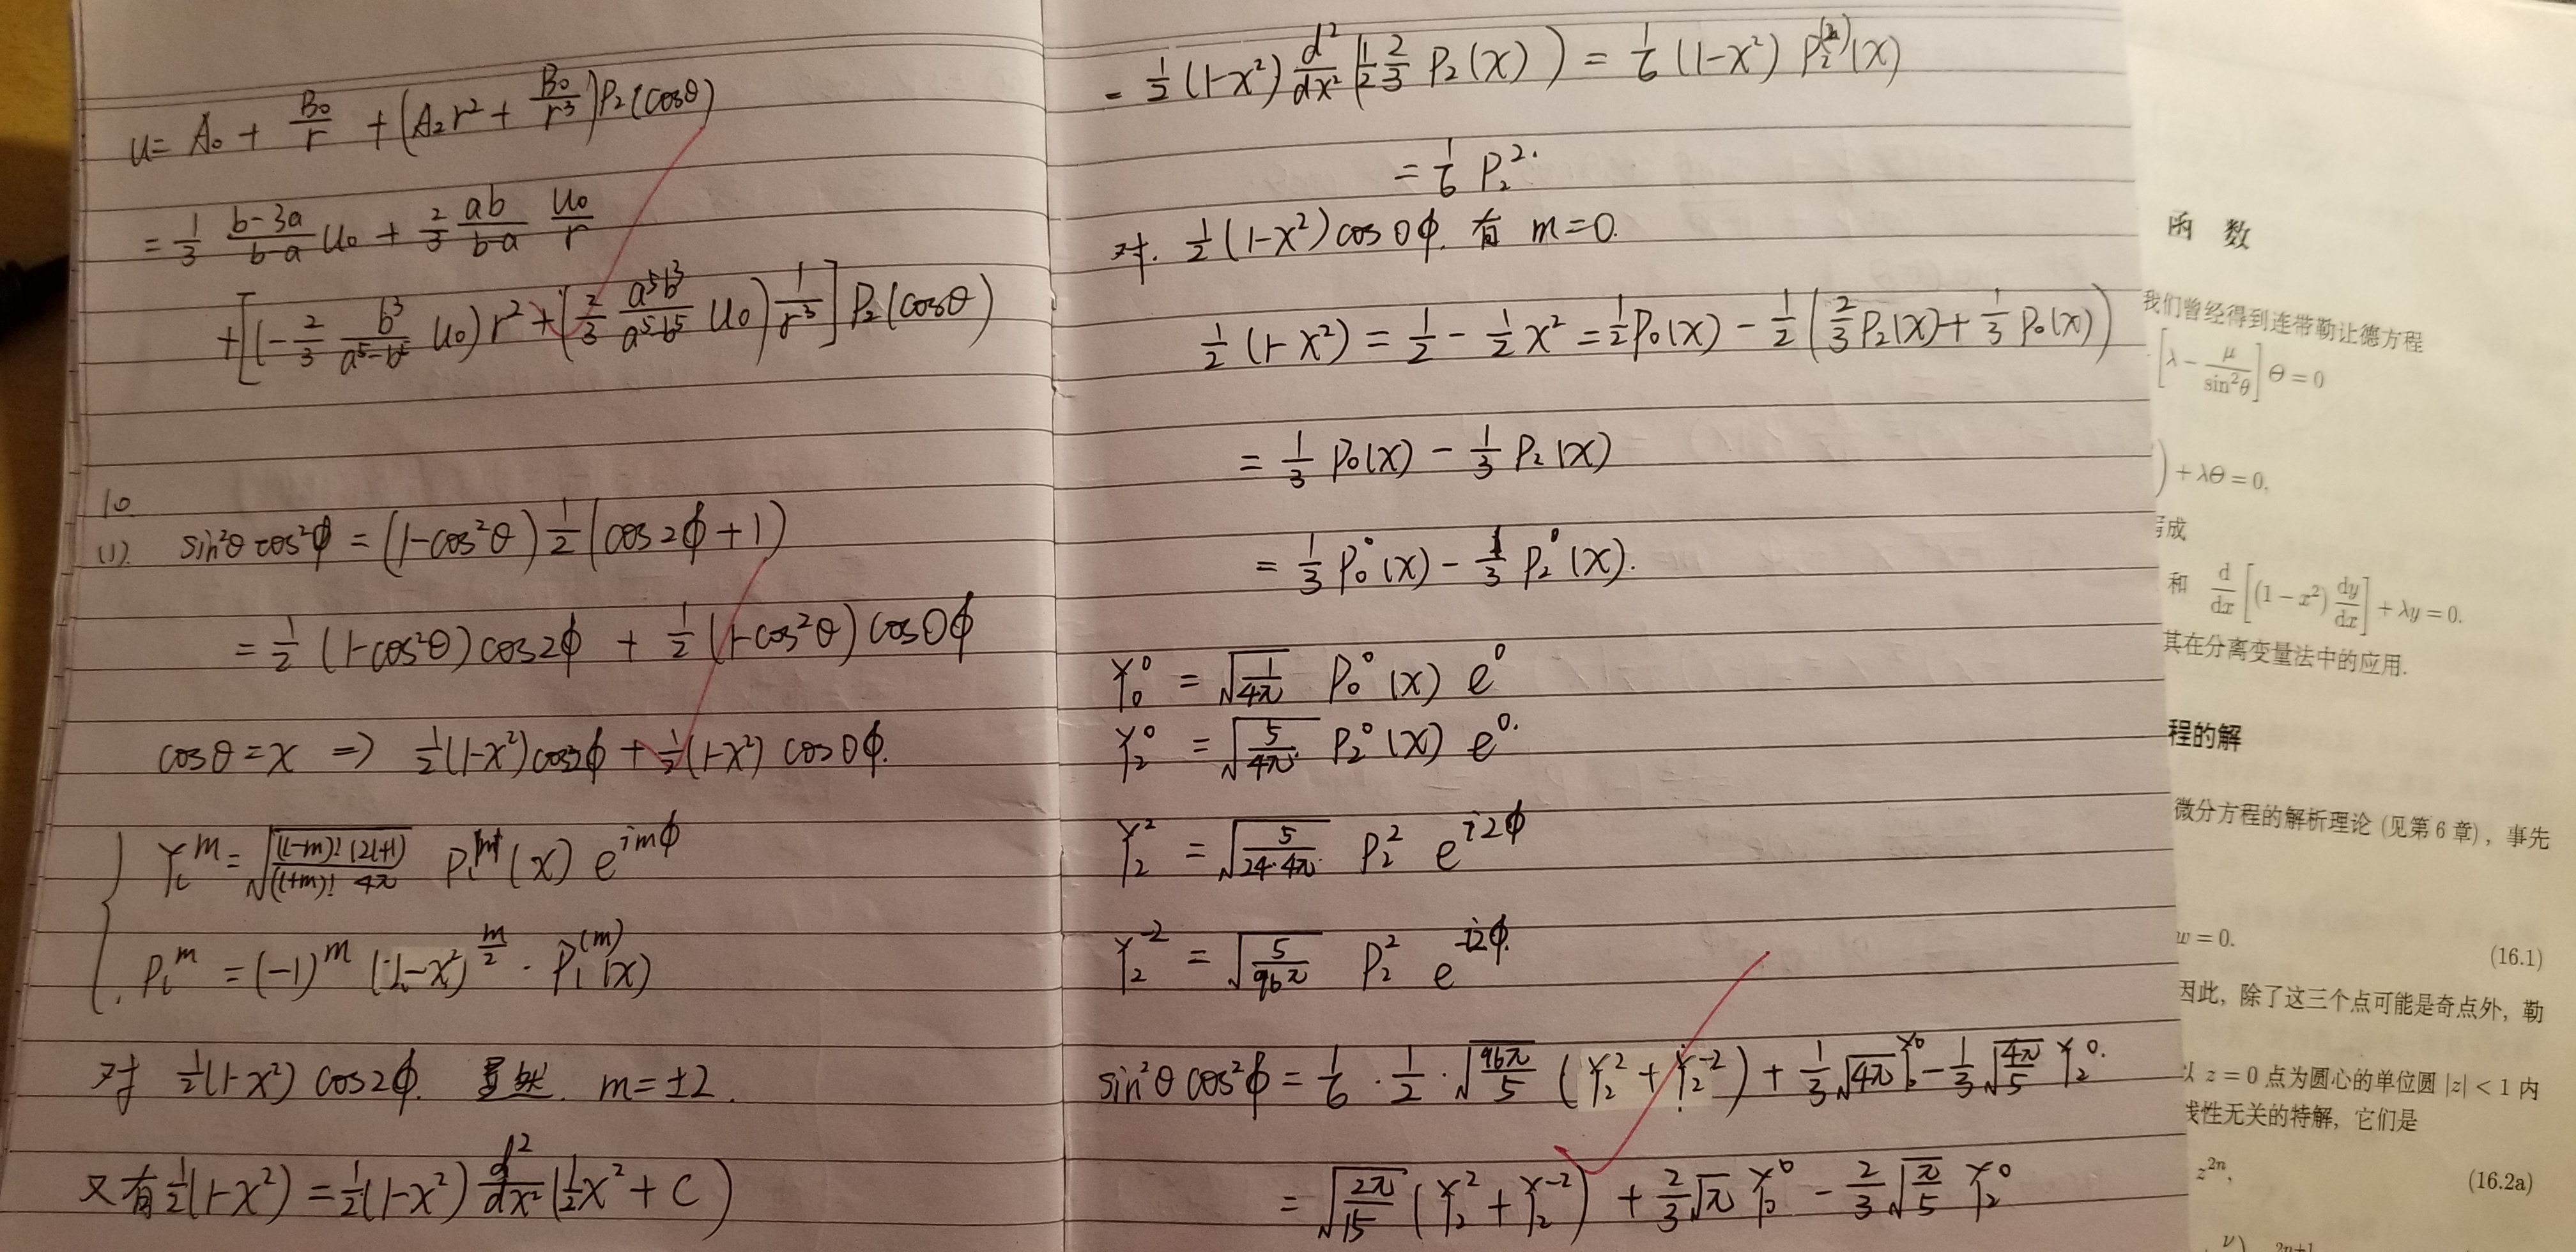 u = A₀ + B₀/r + (A₂r² + B₀/r³)P₂(cosθ)
= 1/3 (b-3a)/(b-a) u₀ + 2/3 ab/(b-a) u₀/r
+[(-2/3 b³/(a⁵-b⁵) u₀)r² + (2/3 a⁵b³/(a⁵-b⁵) u₀) 1/r³] P₂(cosθ)
10
(1). sin²θcos²φ = (1-cos²θ) 1/2 (cos2φ+1)
= 1/2 (1-cos²θ)cos2φ + 1/2 (1-cos²θ) cos0φ
cosθ = x ⇒ 1/2(1-x²)cos2φ + 1/2(1-x²) cos0φ.
Y_l^m = √((l-m)!(2l+1)/((l+m)! 4π)) P_l^|m|(x) e^{imφ}
P_l^m = (-1)^m (1-x²)^{m/2} · P_l^{(m)}(x)
对 1/2(1-x²) cos2φ. 显然. m=±2.
又有 1/2(1-x²) = 1/2(1-x²) d²/dx² (1/2 x² + C)
= 1/2 (1-x²) d²/dx² (1/2 2/3 P₂(x)) = 1/6 (1-x²) P₂^{(2)}(x)
= 1/6 P₂².
对. 1/2(1-x²)cos0φ. 有 m=0.
1/2 (1-x²) = 1/2 - 1/2 x² = 1/2 P₀(x) - 1/2 (2/3 P₂(x) + 1/3 P₀(x))
= 1/3 P₀(x) - 1/3 P₂(x)
= 1/3 P₀⁰(x) - 1/3 P₂⁰(x).
Y₀⁰ = √(1/4π) P₀⁰(x) e⁰
Y₂⁰ = √(5/4π) P₂⁰(x) e⁰.
Y₂² = √(5/(24·4π)) P₂² e^{i2φ}
Y₂⁻² = √(5/96π) P₂² e^{-i2φ}.
sin²θcos²φ = 1/6 · 1/2 · √(96π/5) (Y₂² + Y₂⁻²) + 1/3 √4π Y₀⁰ - 1/3 √(4π/5) Y₂⁰.
= √(2π/15) (Y₂² + Y₂⁻²) + 2/3 √π Y₀⁰ - 2/3 √(π/5) Y₂⁰
函 数
我们曾经得到连带勒让德方程
[λ - μ/sin²θ] Θ = 0
) + λΘ = 0.
写成
和 d/dx [(1-x²) dy/dx] + λy = 0.
其在分离变量法中的应用.
程的解
微分方程的解析理论 (见第 6 章), 事先
w = 0. (16.1)
因此, 除了这三个点可能是奇点外, 勒
以 z = 0 点为圆心的单位圆 |z| < 1 内
线性无关的特解, 它们是
z²ⁿ, (16.2a)